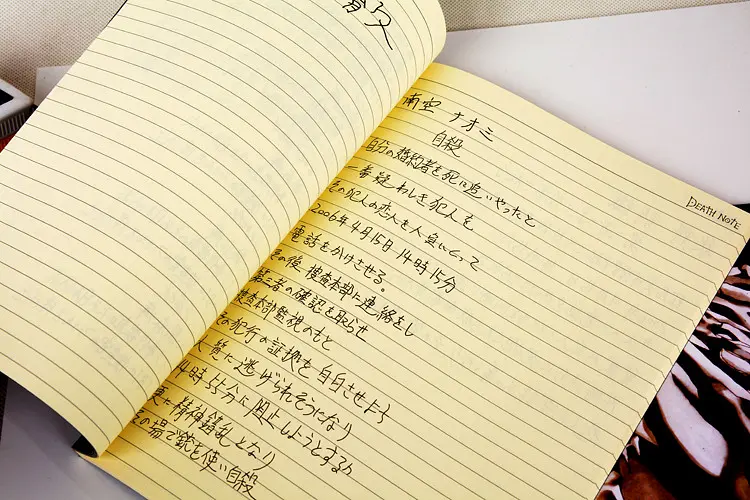 南空 ナオミ
自殺
自分の婚約者を死に追いやったと
一番疑わしき犯人を
その犯人の恋人を人質にとって
2006年4月15日14時15分
電話をかけさせる。
その後、捜査本部に連絡をし
第三者の確認を取らせ
捜査本部監視のもと
その犯行の証拠を自白させよう
人質に逃げられそうになり
14時55分に阻止しようとするが
更に精神錯乱となり
その場で銃を使い自殺
DEATH NOTE